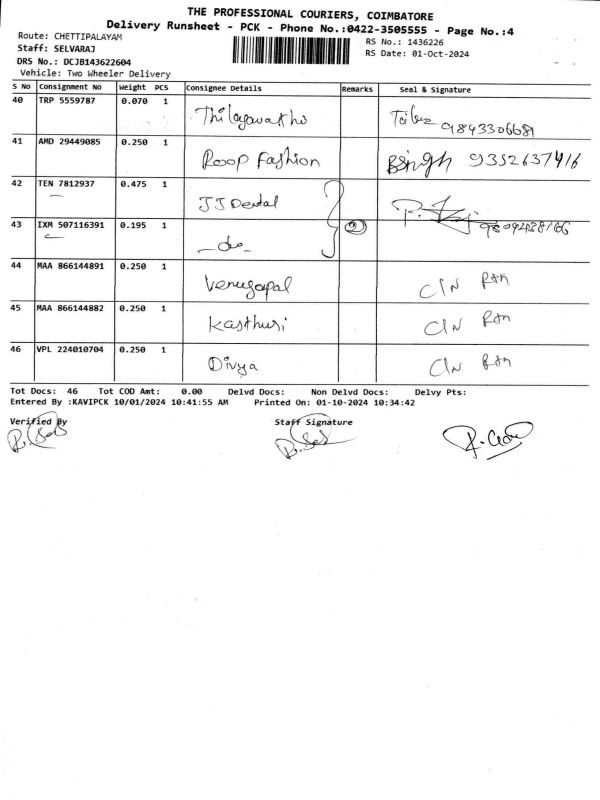 THE PROFESSIONAL COURIERS, COIMBATORE
Delivery Runsheet - PCK - Phone No.:0422-3505555 - Page No.:4
Route: CHETTIPALAYAM
RS No.: 1436226
Staff: SELVARAJ
RS Date: 01-Oct-2024
DRS No.: DCJB143622604
Vehicle: Two Wheeler Delivery
S No Consignment No Weight PCS Consignee Details Remarks Seal & Signature
40 TRP 5559787 0.070 1 Thilagavathi 9843306681
41 AMD 29449085 0.250 1 Roop Fashion BSingh 9352637416
42 TEN 7812937 0.475 1 JJ Dental
43 IXM 507116391 0.195 1 -do- 2
44 MAA 866144891 0.250 1 Venugopal C/N Rtn
45 MAA 866144882 0.250 1 Kasthuri C/N Rtn
46 VPL 224010704 0.250 1 Divya C/N Rtn
Tot Docs: 46 Tot COD Amt: 0.00 Delvd Docs: Non Delvd Docs: Delvy Pts:
Entered By :KAVIPCK 10/01/2024 10:41:55 AM Printed On: 01-10-2024 10:34:42
Verified By Staff Signature